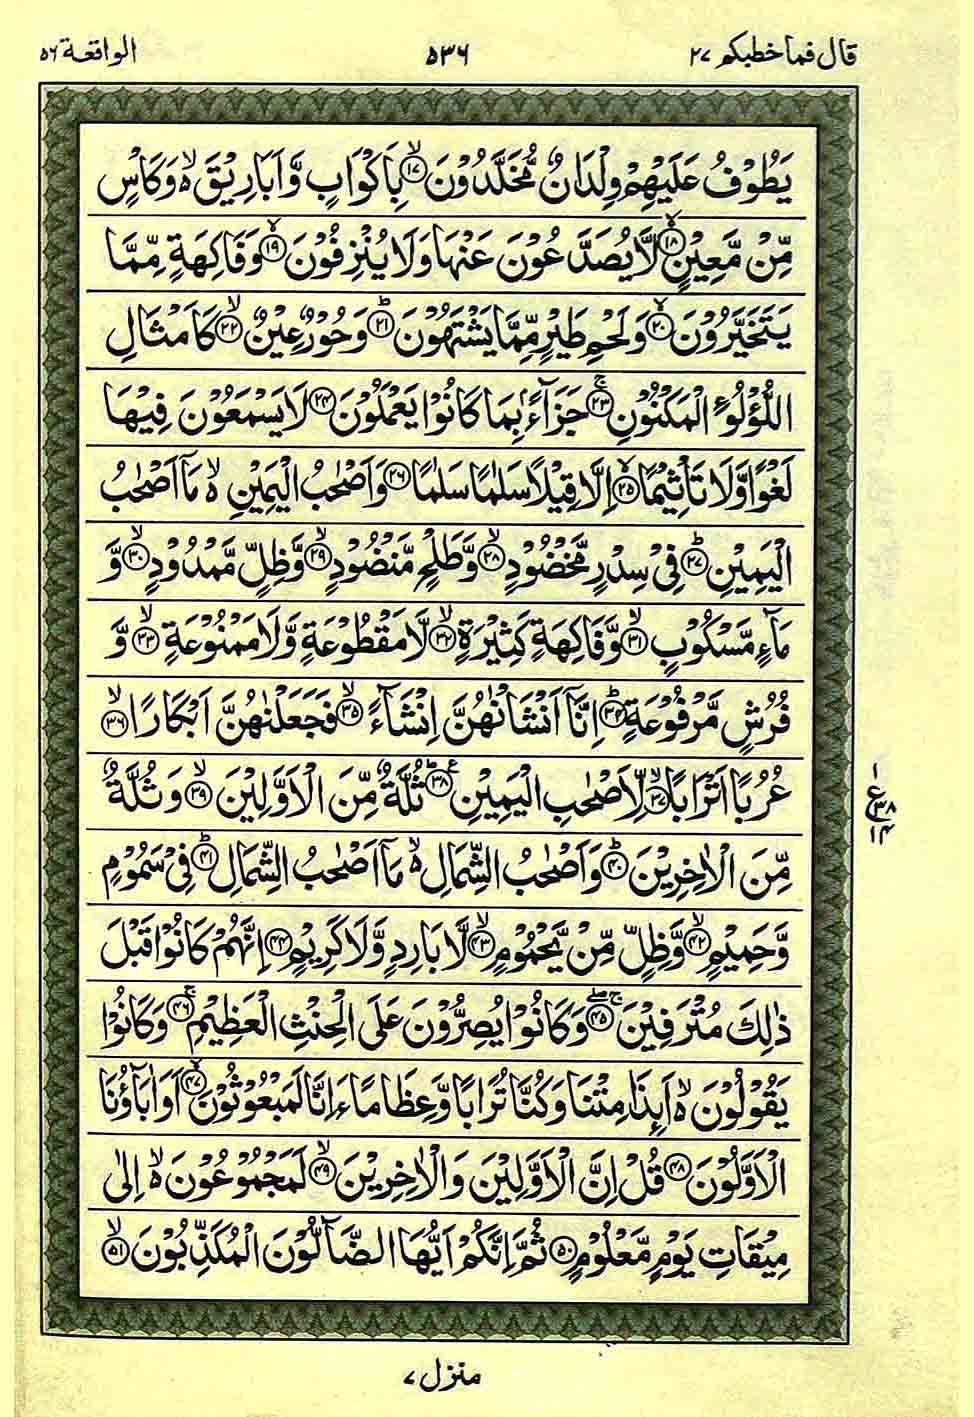 قال فما خطبكم ۲۷
۵۳۶
الواقعة ۵۶
يَطُوۡفُ عَلَيۡهِمۡ وِلۡدَانٌ مُّخَلَّدُوۡنَۙ‏ ﴿۱۷﴾ بِاَكۡوَابٍ وَّاَبَارِيۡقَ ۙ وَكَاۡسٍ
مِّنۡ مَّعِيۡنٍۙ‏ ﴿۱۸﴾ لَّا يُصَدَّعُوۡنَ عَنۡهَا وَلَا يُنۡزِفُوۡنَۙ‏ ﴿۱۹﴾ وَفَاكِهَةٍ مِّمَّا
يَتَخَيَّرُوۡنَۙ‏ ﴿۲۰﴾ وَلَحۡمِ طَيۡرٍ مِّمَّا يَشۡتَهُوۡنَؕ‏ ﴿۲۱﴾ وَحُوۡرٌ عِيۡنٌۙ‏ ﴿۲۲﴾ كَاَمۡثَالِ
اللُّـؤۡلُـوٴِالۡمَكۡنُوۡنِۚ‏ ﴿۲۳﴾ جَزَآءًۢ بِمَا كَانُوۡا يَعۡمَلُوۡنَ‏ ﴿۲۴﴾ لَا يَسۡمَعُوۡنَ فِيۡهَا
لَغۡوًا وَّلَا تَاۡثِيۡمًاۙ‏ ﴿۲۵﴾ اِلَّا قِيۡلًا سَلٰمًا سَلٰمًا‏ ﴿۲۶﴾ وَاَصۡحٰبُ الۡيَمِيۡنِ ۙ مَاۤ اَصۡحٰبُ
الۡيَمِيۡنِؕ‏ ﴿۲۷﴾ فِىۡ سِدۡرٍ مَّخۡضُوۡدٍۙ‏ ﴿۲۸﴾ وَّطَلۡحٍ مَّنۡضُوۡدٍۙ‏ ﴿۲۹﴾ وَّظِلٍّ مَّمۡدُوۡدٍۙ‏ ﴿۳۰﴾ وَّ
مَآءٍ مَّسۡكُوۡبٍۙ‏ ﴿۳۱﴾ وَّفَاكِهَةٍ كَثِيۡرَةٍۙ‏ ﴿۳۲﴾ لَّا مَقۡطُوۡعَةٍ وَّلَا مَمۡنُوۡعَةٍۙ‏ ﴿۳۳﴾ وَّ
فُرُشٍ مَّرۡفُوۡعَةٍؕ‏ ﴿۳۴﴾ اِنَّاۤ اَنۡشَاۡنٰهُنَّ اِنۡشَآءًۙ‏ ﴿۳۵﴾ فَجَعَلۡنٰهُنَّ اَبۡكَارًاۙ‏ ﴿۳۶﴾
عُرُبًا اَتۡرَابًاۙ‏ ﴿۳۷﴾ لِّاَصۡحٰبِ الۡيَمِيۡنِؕ‏ ﴿۳۸﴾ ثُلَّةٌ مِّنَ الۡاَوَّلِيۡنَۙ‏ ﴿۳۹﴾ وَثُلَّةٌ
مِّنَ الۡاٰخِرِيۡنَؕ‏ ﴿۴۰﴾ وَاَصۡحٰبُ الشِّمَالِ ۙ مَاۤ اَصۡحٰبُ الشِّمَالِؕ‏ ﴿۴۱﴾ فِىۡ سَمُوۡمٍ
وَّحَمِيۡمٍۙ‏ ﴿۴۲﴾ وَّظِلٍّ مِّنۡ يَّحۡمُوۡمٍۙ‏ ﴿۴۳﴾ لَّا بَارِدٍ وَّلَا كَرِيۡمٍ‏ ﴿۴۴﴾ اِنَّهُمۡ كَانُوۡا قَبۡلَ
ذٰلِكَ مُتۡرَفِيۡنَۚ ۖ‏ ﴿۴۵﴾ وَكَانُوۡا يُصِرُّوۡنَ عَلَى الۡحِنۡثِ الۡعَظِيۡمِۚ‏ ﴿۴۶﴾ وَكَانُوۡا
يَقُوۡلُوۡنَ ۙ اَٮِٕذَا مِتۡنَا وَكُنَّا تُرَابًا وَّعِظَامًا ءَاِنَّا لَمَبۡعُوۡثُوۡنَۙ‏ ﴿۴۷﴾ اَوَاٰبَآؤُنَا
الۡاَوَّلُوۡنَ‏ ﴿۴۸﴾ قُلۡ اِنَّ الۡاَوَّلِيۡنَ وَالۡاٰخِرِيۡنَۙ‏ ﴿۴۹﴾ لَمَجۡمُوۡعُوۡنَ ۙ اِلٰى
مِيۡقَاتِ يَوۡمٍ مَّعۡلُوۡمٍ‏ ﴿۵۰﴾ ثُمَّ اِنَّكُمۡ اَيُّهَا الضَّآلُّوۡنَ الۡمُكَذِّبُوۡنَۙ‏ ﴿۵۱﴾
۱
ع ۳۸
۱۴
منزل ۷